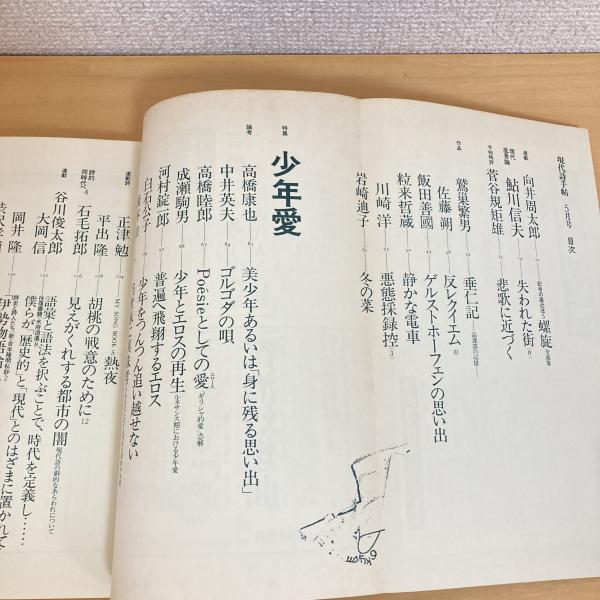 現代詩手帖 5月号 目次
連載 向井周太郎 螺旋
現代風景論 鮎川信夫 失われた街 Ⅳ
手帖時評 菅谷規矩雄 悲歌に近づく
作品
鷲巣繁男 垂仁記
佐藤朔 反レクイエム Ⅱ
飯田善國 ゲルストホーフェンの思い出
粒来哲蔵 静かな電車
川崎洋 悪態採録控 3
岩崎迪子 冬の菜
特集 少年愛
論考
高橋康也 81 美少年あるいは「身に残る思い出」
中井英夫 84 ゴルゴダの唄
高橋睦郎 67 Poésieとしての愛 エロース 「ギリシャ的愛」透解
成瀬駒男 88 少年とエロスの再生 ルネサンス期における少年愛
河村錠一郎 普遍へ飛翔するエロス
白石公子 少年をうんうん追い越せない
連載詩 正津勉 104 MY SONG BOOK 8 熱夜
平出隆 胡桃の戦意のために 12
詩的同時代 4 石毛拓郎 見えがくれする都市の闇 現代詩の劇的なあらわれについて
連載 谷川俊太郎
大岡信
語彙と語法を択ぶことで、時代を定義し……
僕らが「歴史的」と「現代」とのはざまに置かれて
岡井隆
伊勢物語